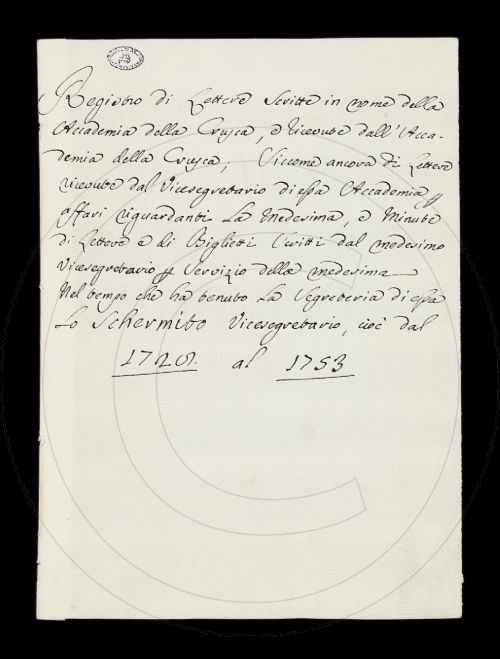 Registro di Lettere scritte in nome della
Accademia della Crusca, e ricevute dall'Acca-
demia della Crusca; Siccome ancora di Lettere
ricevute dal Vicesegretario di essa Accademia p
affari riguardanti la Medesima, e Minute
di Lettere e di Biglietti scritti dal medesimo
Vicesegretario p servizio della medesima
Nel tempo che ha tenuto la Segreteria di essa
Lo Schermito Vicesegretario, cioè dal
al 1753